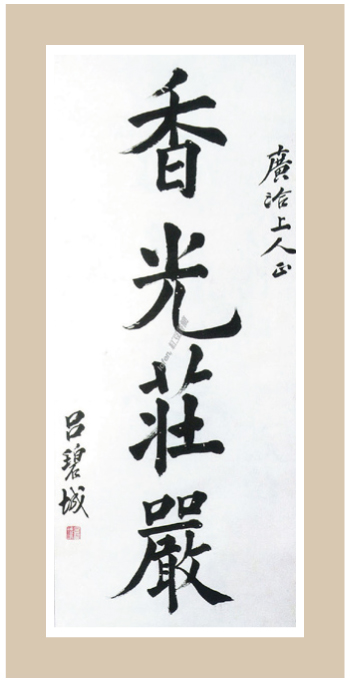 廣洽上人正
香光莊嚴
呂碧城